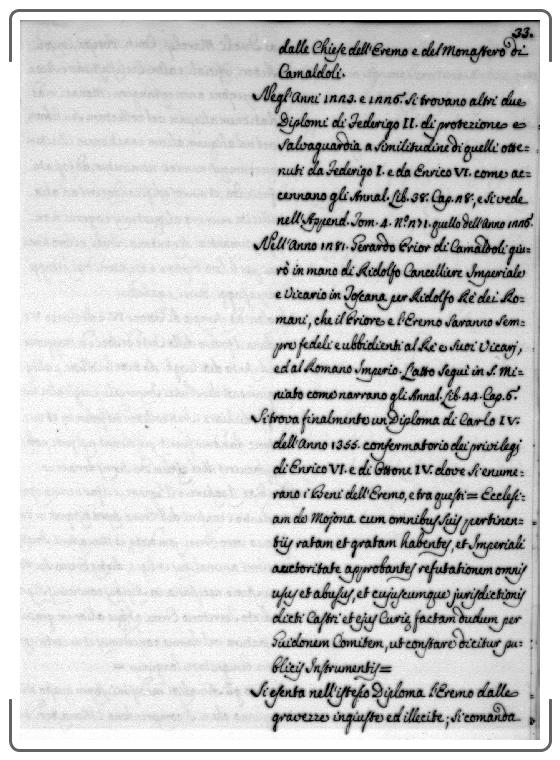 33.
dalle Chiese dell'Eremo e del Monastero di
Camaldoli.
Negl'Anni 1223. e 1226. si trovano altri due
Diplomi di Federigo II. di protezione e
salvaguardia a similitudine di quelli otte=
nuti da Federigo I. e da Enrico VI. come ac=
cennano gli Annal. Lib. 38. Cap. 28., e si vede
nell'Append. Tom. 4. N.o 271. quello dell'anno 1226.
Nell'Anno 1281. Gerardo Prior di Camaldoli giu=
rò in mano di Ridolfo Cancelliere Imperiale
e Vicario in Toscana per Ridolfo Rè dei Ro=
mani, che il Priore e l'Eremo saranno sem=
pre fedeli e ubbidienti al Rè e suoi Vicarj,
ed al Romano Imperio. L'atto seguì in S. Mi=
niato come narrano gli Annal. Lib. 44. Cap. 6.
Si trova finalmente un Diploma di Carlo IV.
dell'Anno 1355. confermatorio dei privilegj
di Enrico VI. e di Ottone IV. dove si enume=
rano i Beni dell'Eremo, e tra questi = Ecclesi=
am de Mojona cum omnibus suis pertinen=
tiis ratam et gratam habentes, et Imperiali
auctoritate approbantes refutationem omnis
usus et abusus, et cujuscumque jurisdictionis
dicti Castri et ejus Curiæ factam dudum per
Guidonem Comitem, ut constare dicitur pu=
blicis Instrumentis =
Si esenta nell'istesso Diploma l'Eremo dalle
gravezze ingiuste ed illecite; si comanda